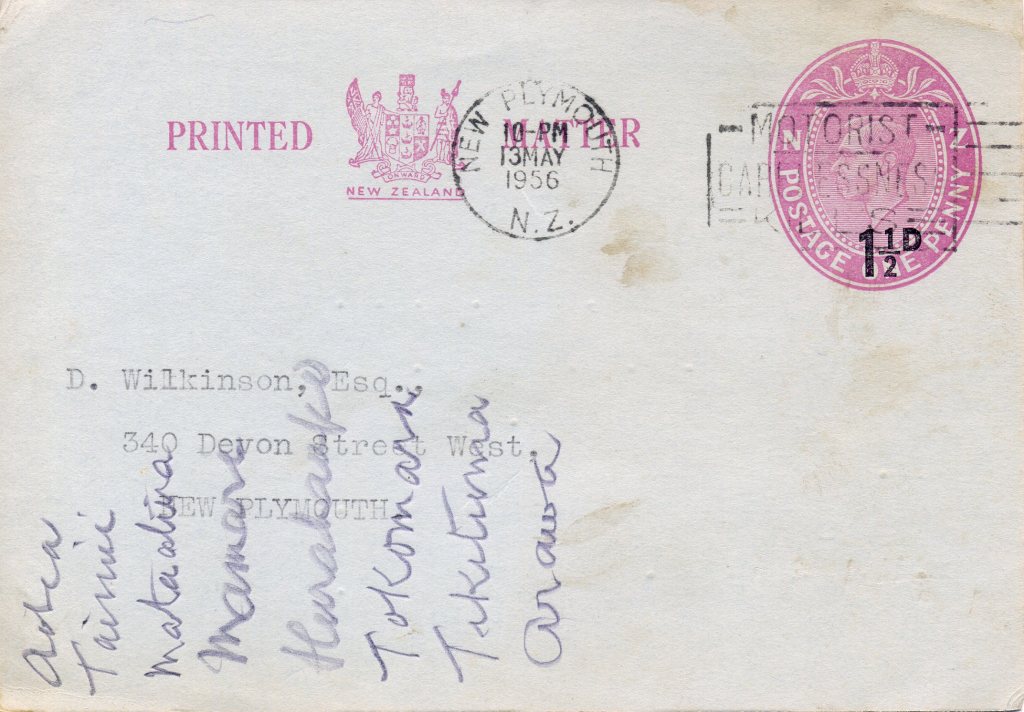 PRINTED MATTER
ONWARD
NEW ZEALAND
NEW PLYMOUTH
10-PM
13MAY
1956
N.Z.
MOTORIST
NZ POSTAGE ONE PENNY NZ
1½D
D. Wilkinson, Esq.,
340 Devon Street West.
NEW PLYMOUTH
Aotea
Tainui.
Mataatua
Kurahaupo
Tokomaru
Arawa